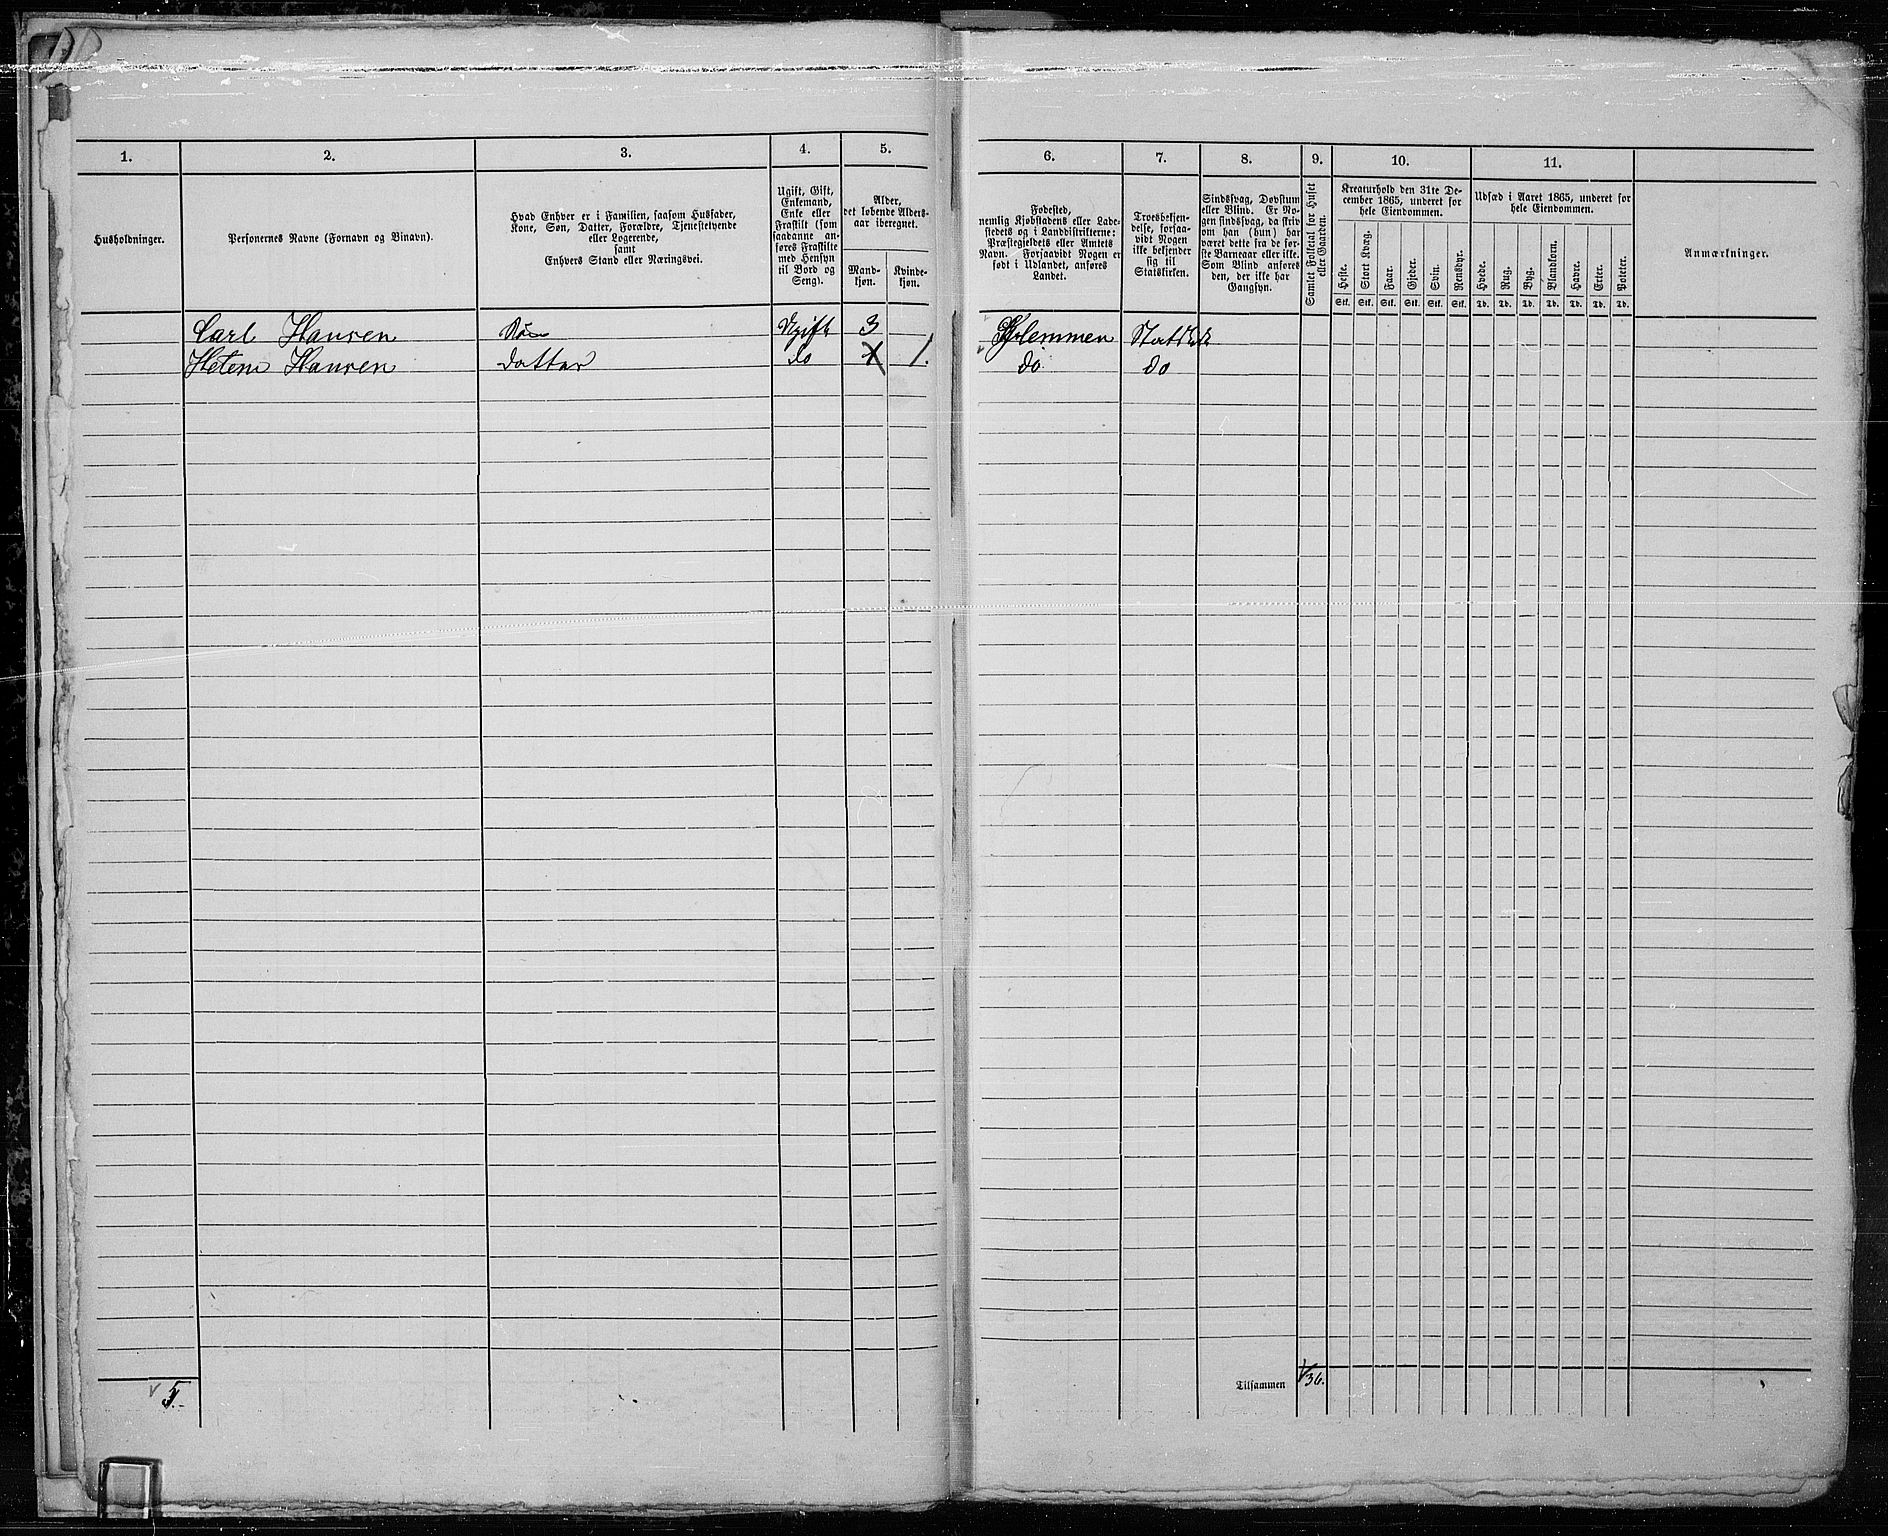 1. 2. 3. 4. 5. 6. 7. 8. 9. 10. 11.
Husholdninger.
Personernes Navne (Fornavn og Binavn).
Hvad Enhver er i Familien, saasom Husfader,
Kone, Søn, Datter, Forældre, Tjenestetyende
eller Logerende,
samt
Enhvers Stand eller Næringsvei.
Ugift, Gift,
Enkemand,
Enke eller
Fraskilt (som
saadanne an-
føres Fraskilte
med Hensyn
til Bord og
Seng).
Alder,
det løbende Alders-
aar iberegnet.
Mand-
kjøn.
Kvinde-
kjøn.
Fødested,
nemlig Kjøbstadens eller Lade-
stedets og i Landdistrikterne:
Præstegjeldets eller Amtets
Navn. Forsaavidt Nogen er
født i Udlandet, anføres
Landet.
Troesbekjen-
delse, forsaa-
vidt Nogen
ikke bekjender
sig til
Statskirken.
Sindssvag, Døvstum
eller Blind. Er No-
gen sindssvag, da skriv
om han (hun) har
været dette fra de før-
ste Barneaar eller ikke.
Som Blind anføres
den, der ikke har
Gangsyn.
Samlet Folketal for Huset
eller Gaarden.
Kreaturhold den 31te De-
cember 1865, underet for
hele Eiendommen.
Heste. Stort Kvæg. Faar. Gjeder. Svin. Rensdyr.
Stk. Stk. Stk. Stk. Stk. Stk.
Udsæd i Aaret 1865, underet for
hele Eiendommen.
Hvede. Rug. Byg. Blandkorn. Havre. Erter. Poteter.
Td. Td. Td. Td. Td. Td. Td.
Anmærkninger.
Carl Hansen Søn Ugift 3
Helene Hansen Datter do 1.
do do
Tilsammen 36.
5.